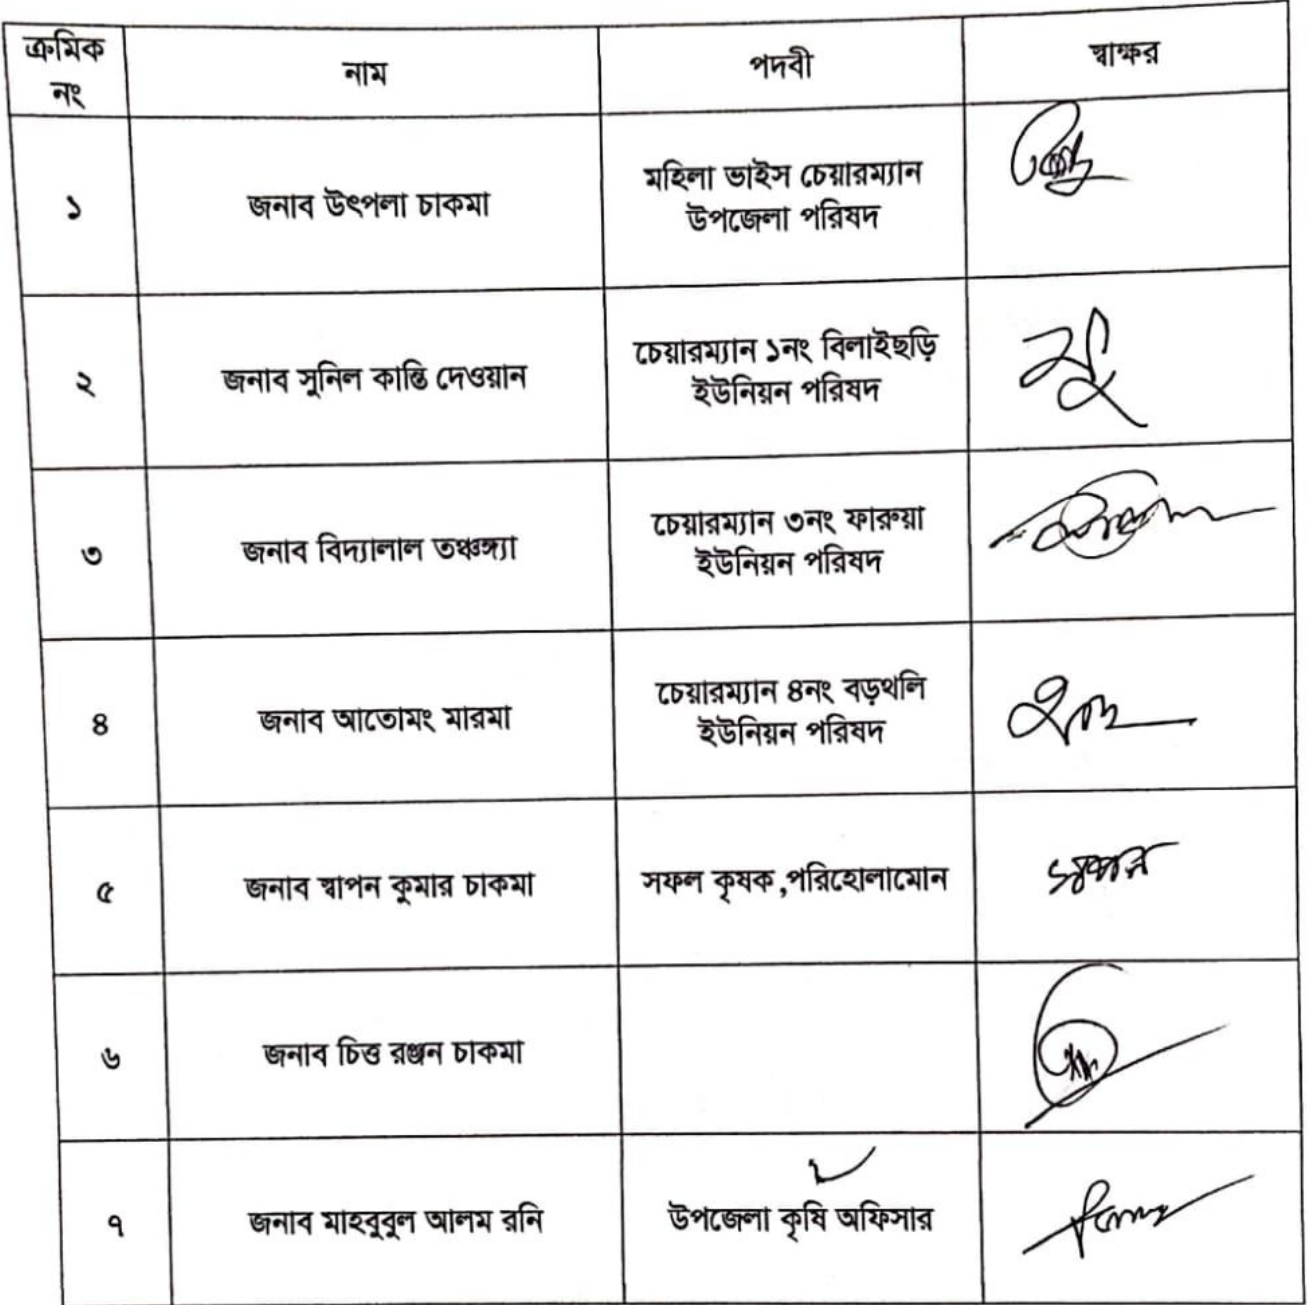 ক্রমিক নং
নাম
পদবী
স্বাক্ষর
১
জনাব উৎপলা চাকমা
মহিলা ভাইস চেয়ারম্যান
উপজেলা পরিষদ
২
জনাব সুনিল কান্তি দেওয়ান
চেয়ারম্যান ১নং বিলাইছড়ি
ইউনিয়ন পরিষদ
৩
জনাব বিদ্যালাল তঞ্চঙ্গ্যা
চেয়ারম্যান ৩নং ফারুয়া
ইউনিয়ন পরিষদ
৪
জনাব আতোমং মারমা
চেয়ারম্যান ৪নং বড়থলি
ইউনিয়ন পরিষদ
৫
জনাব স্বাপন কুমার চাকমা
সফল কৃষক,পরিহোলামোন
৬
জনাব চিত্ত রঞ্জন চাকমা
৭
জনাব মাহবুবুল আলম রনি
উপজেলা কৃষি অফিসার